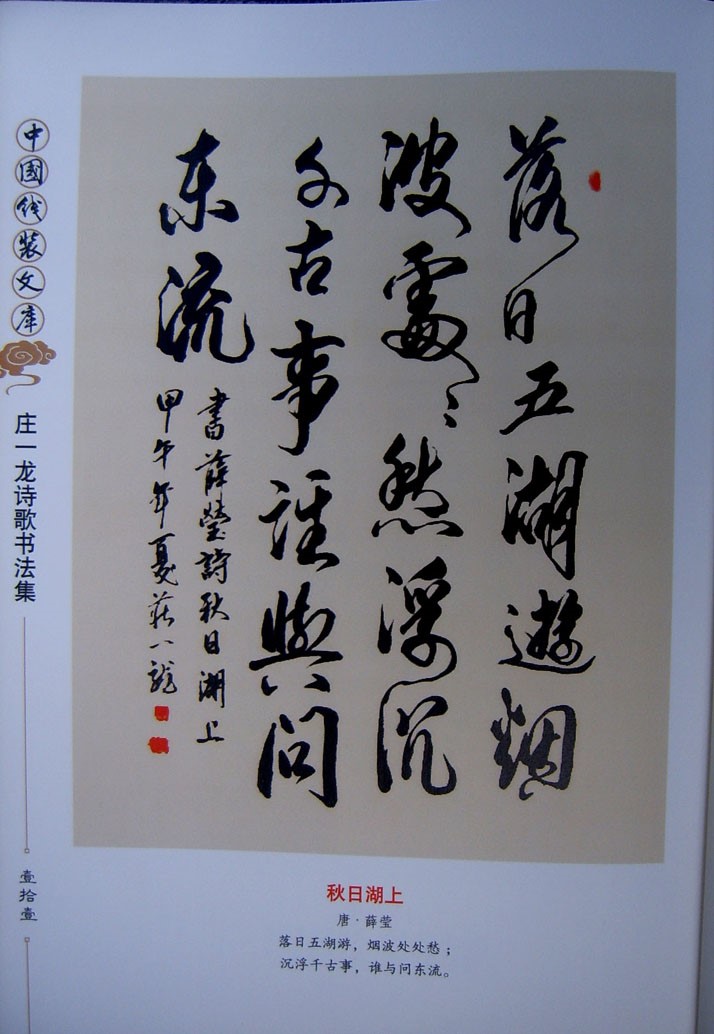 中國线装文库
庄一龙诗歌书法集
壹拾壹
落日五湖遊烟
波處々愁浮沉
千古事誰與问
东流
書薛瑩詩秋日湖上
甲午年夏莊一龍
秋日湖上
唐·薛莹
落日五湖游，烟波处处愁；
沉浮千古事，谁与问东流。